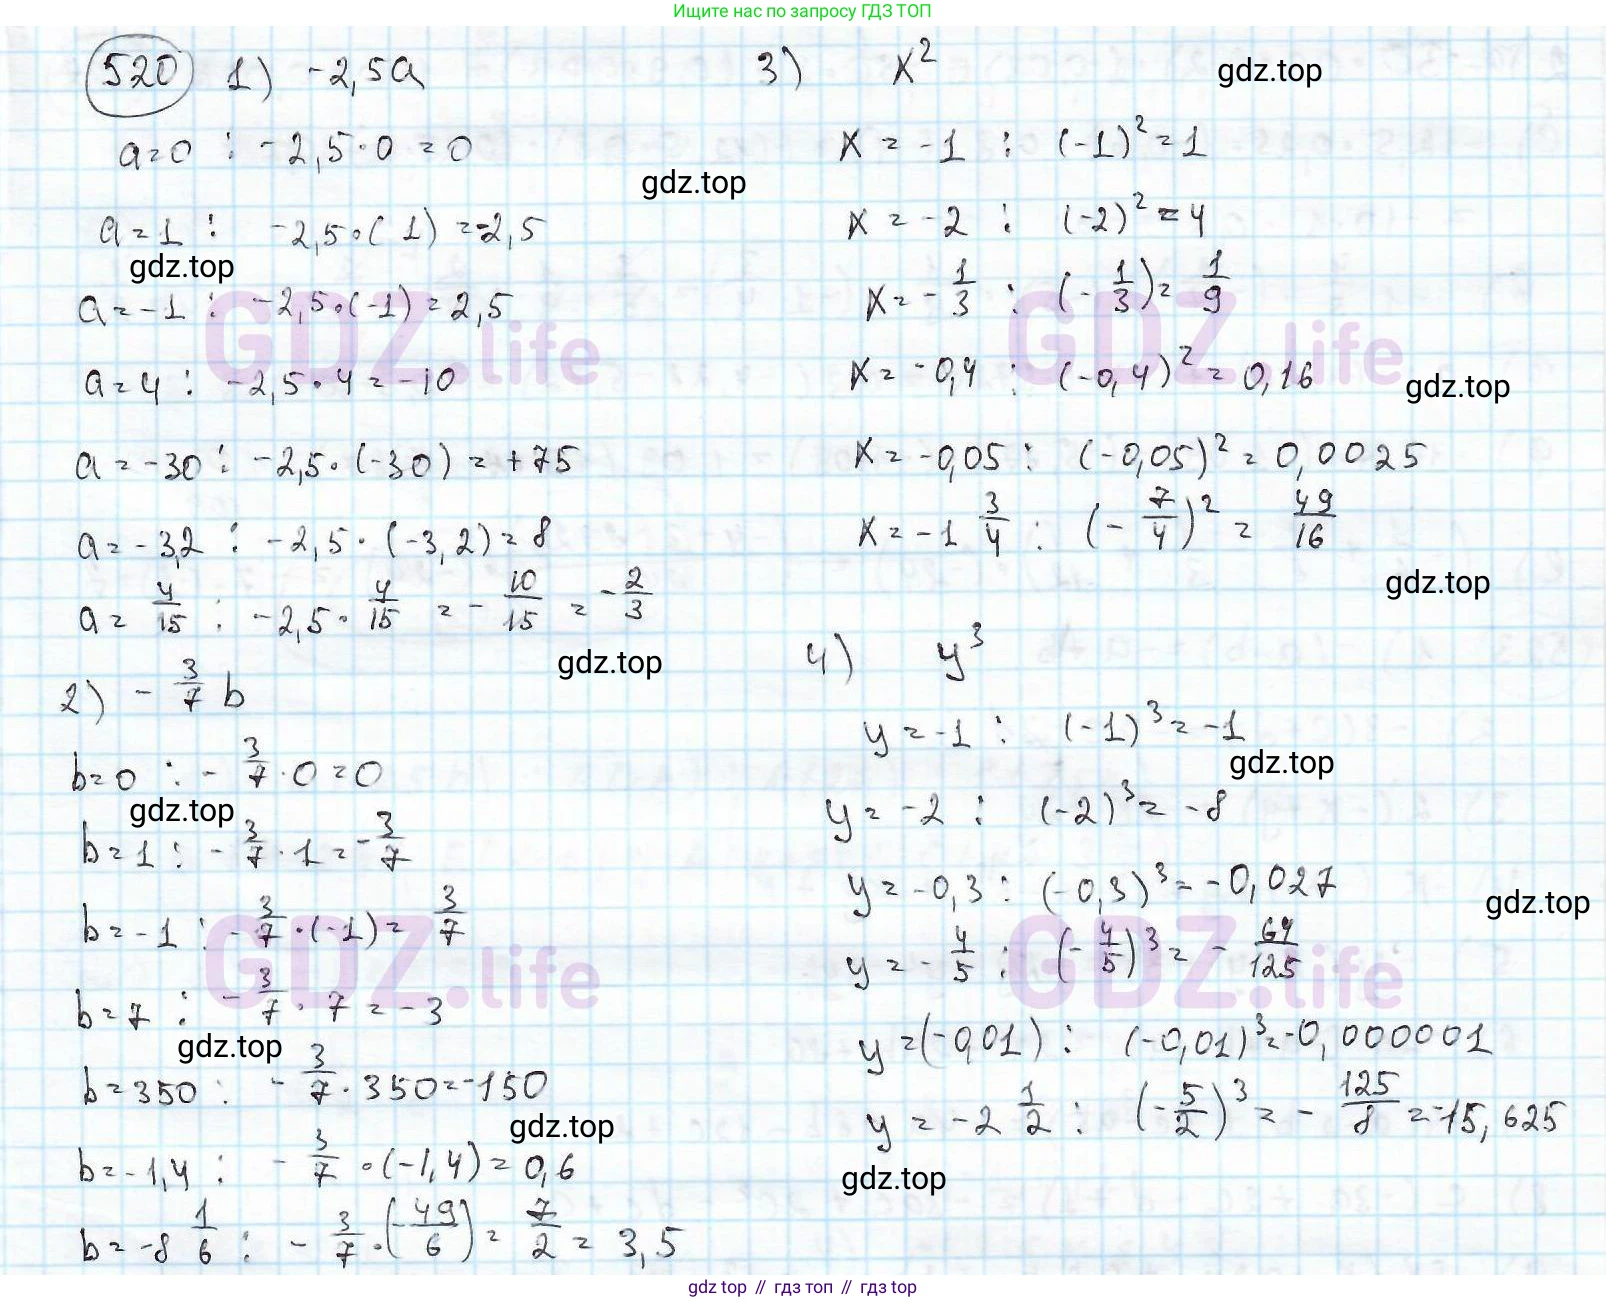 Ищите нас по запросу ГДЗ ТОП
520 1) -2,5a
a=0 : -2,5·0=0
gdz.top
a=1 : -2,5·(1)=-2,5
gdz.top
a=-1 : -2,5·(-1)=2,5
GDZ.life
a=4 : -2,5·4=-10
a=-30 : -2,5·(-30)=+75
a=-3,2 : -2,5·(-3,2)=8
a=4/15 : -2,5·4/15=-10/15=-2/3
gdz.top
2) -3/7 b
b=0 : -3/7·0=0
gdz.top
b=1 : -3/7·1=-3/7
b=-1 : -3/7·(-1)=3/7
GDZ.life
b=7 : -3/7·7=-3
gdz.top
b=350 : -3/7·350=-150
gdz.top
b=-1,4 : -3/7·(-1,4)=0,6
b=-8 1/6 : -3/7·(-49/6)=7/2=3,5
3) x²
gdz.top
x=-1 : (-1)²=1
x=-2 : (-2)²=4
x=-1/3 : (-1/3)=1/9
GDZ.life
x=-0,4 : (-0,4)²=0,16
gdz.top
x=-0,05 : (-0,05)²=0,0025
x=-1 3/4 : (-7/4)²=49/16
gdz.top
4) y³
y=-1 : (-1)³=-1
gdz.top
y=-2 : (-2)³=-8
y=-0,3 : (-0,3)³=-0,027
gdz.top
y=-4/5 : (-4/5)³=-64/125
GDZ.life
y=(-0,01) : (-0,01)³=-0,000001
y=-2 1/2 : (-5/2)³=-125/8=-15,625
gdz.top
gdz top // гдз топ // gdz top